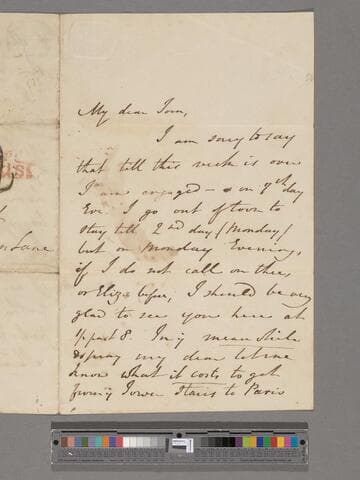 My dear Tom,
I am sorry to say
that till this week is over
I am engaged - & on 7th day
Eve. I go out of town to
stay till 2nd day (Monday)
but on Monday Evening,
if I do not call on thee,
or Eliza before, I should be very
glad to see you here at
½ past 8. In ye mean while
do pray my dear let me
know what it costs to get
from ye Tower Stairs to Paris
Lane